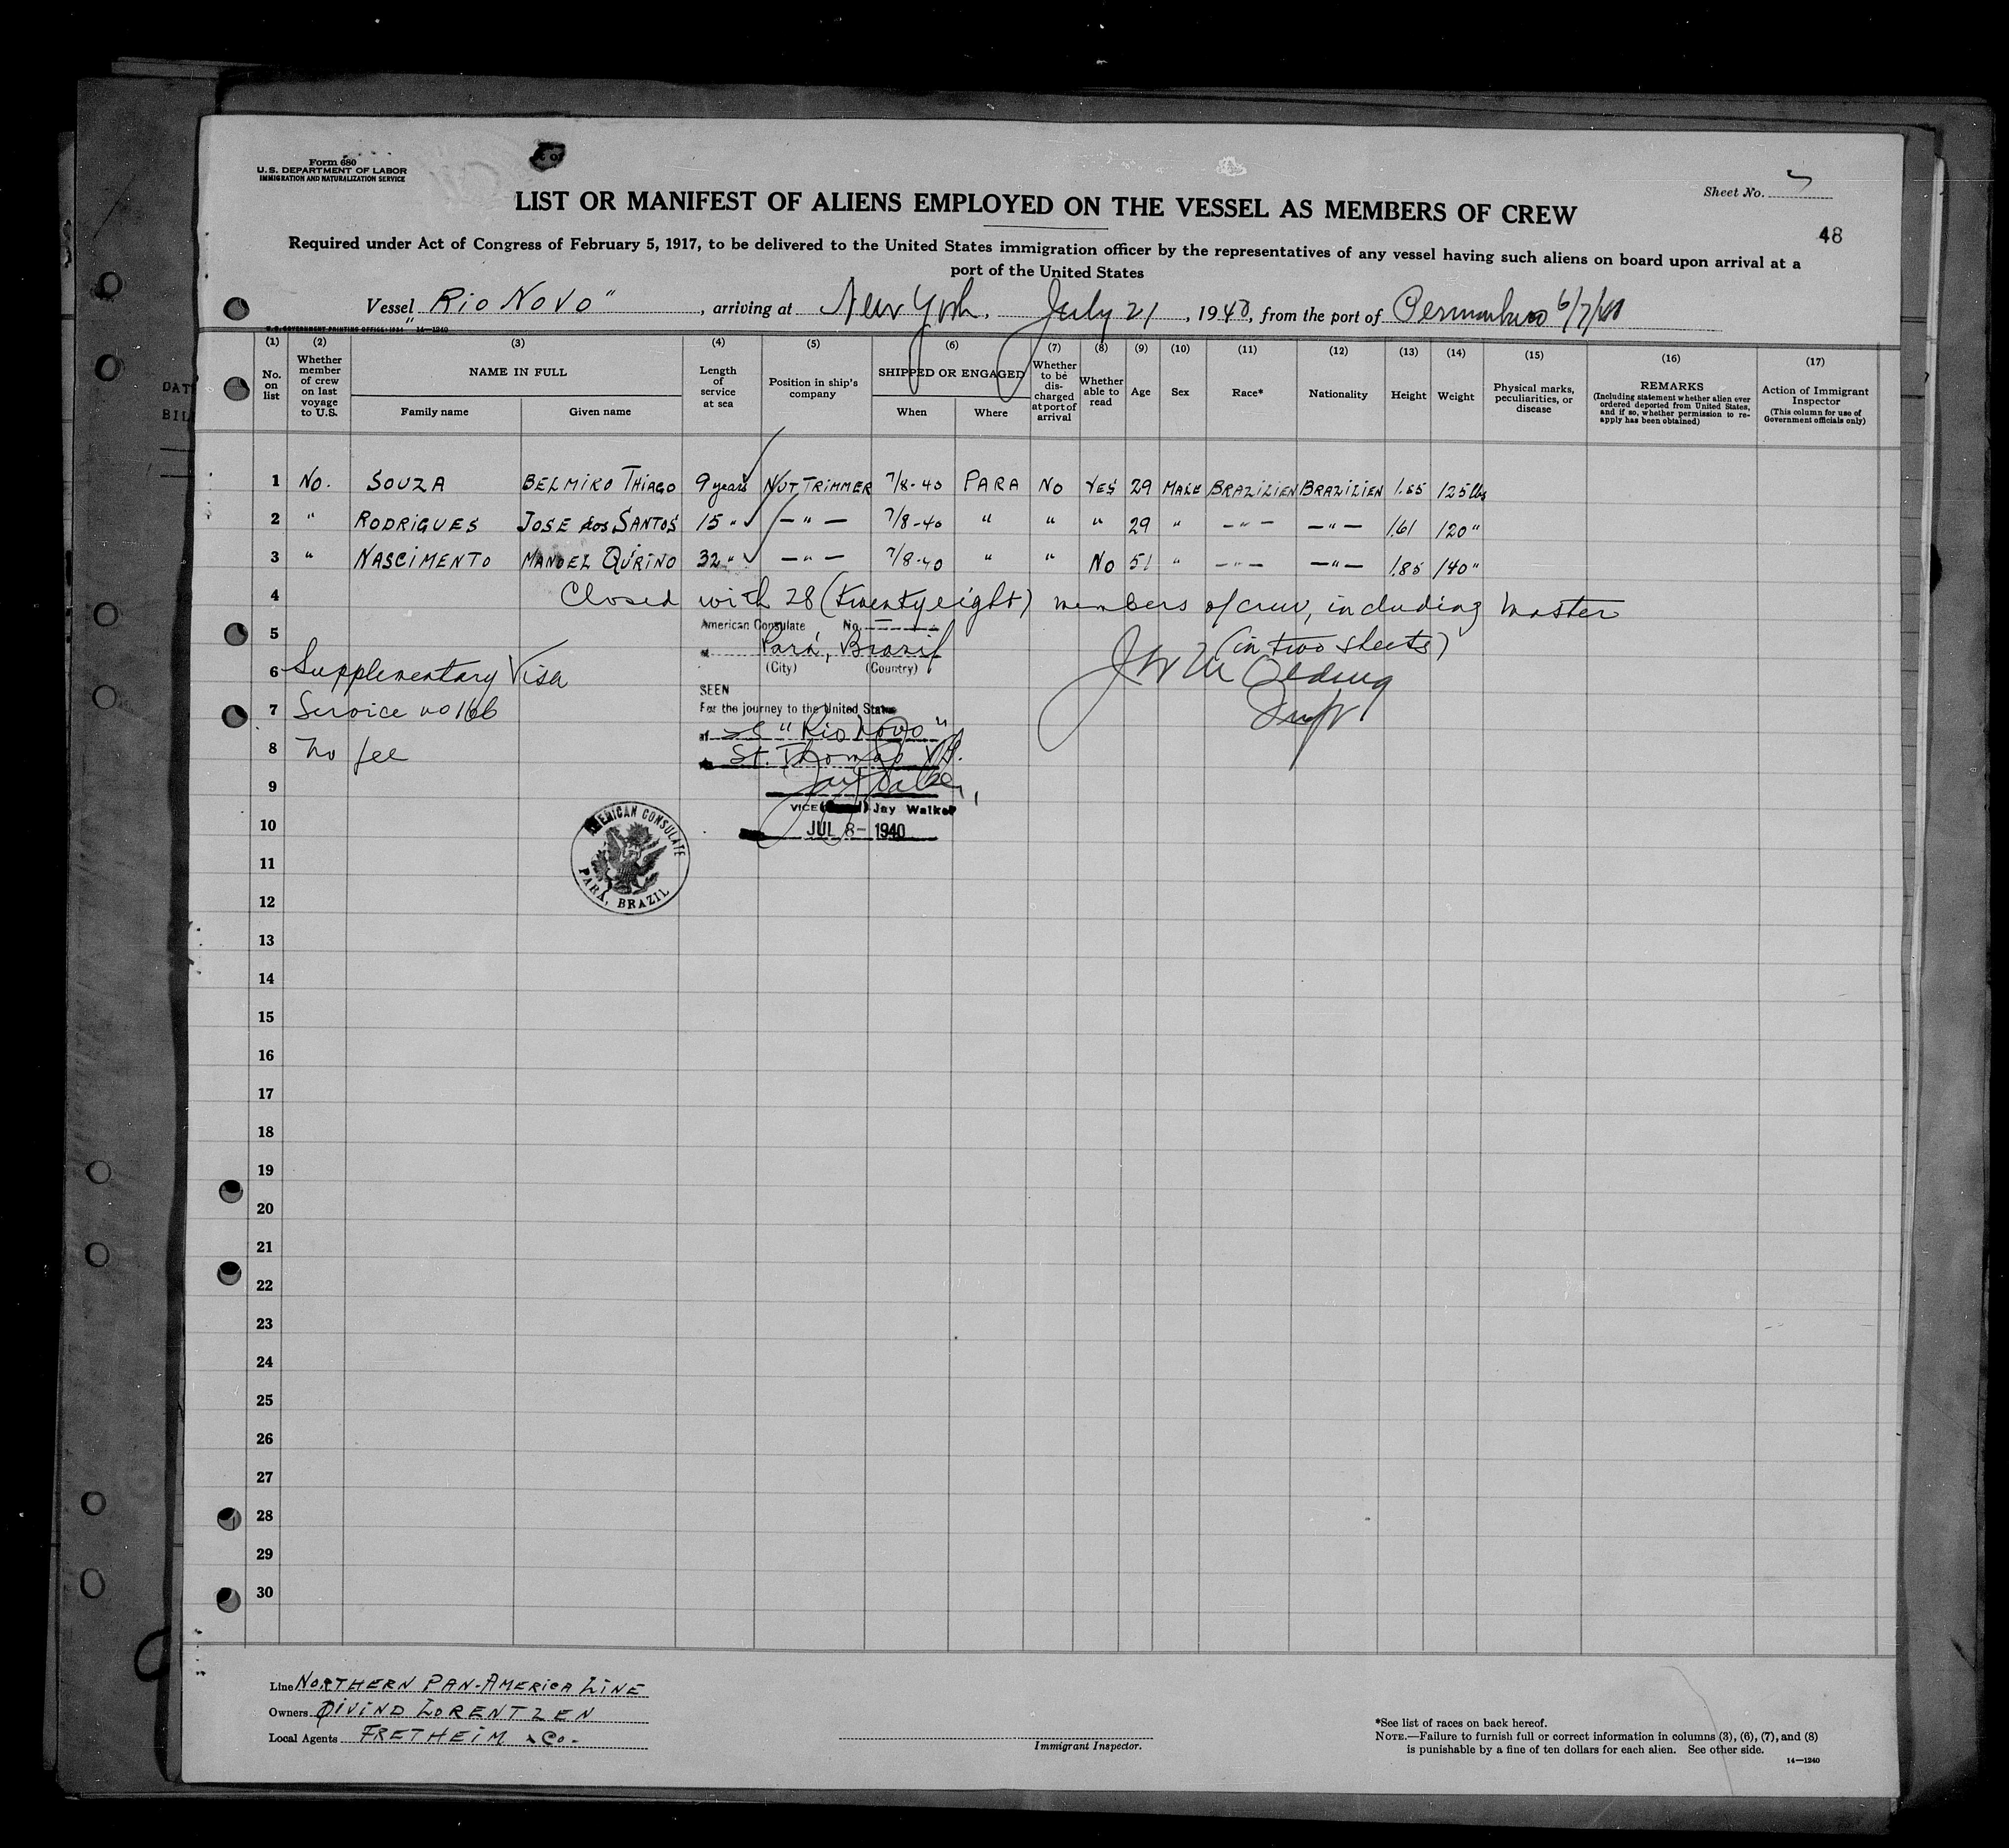 Form 680
U. S. DEPARTMENT OF LABOR
IMMIGRATION AND NATURALIZATION SERVICE
Sheet No.
LIST OR MANIFEST OF ALIENS EMPLOYED ON THE VESSEL AS MEMBERS OF CREW
48
Required under Act of Congress of February 5, 1917, to be delivered to the United States immigration officer by the representatives of any vessel having such aliens on board upon arrival at a
port of the United States
Vessel "Rio Novo", arriving at New York, July 21, 1940, from the port of Pernambuco 6/7/40
U. S. GOVERNMENT PRINTING OFFICE: 1934 14—1240
(1) (2) (3) (4) (5) (6) (7) (8) (9) (10) (11) (12) (13) (14) (15) (16) (17)
No. on list
Whether member of crew on last voyage to U.S.
NAME IN FULL
Family name
Given name
Length of service at sea
Position in ship's company
SHIPPED OR ENGAGED
When
Where
Whether to be discharged at port of arrival
Whether able to read
Age
Sex
Race*
Nationality
Height
Weight
Physical marks, peculiarities, or disease
REMARKS
(Including statement whether alien ever ordered deported from United States, and if so, whether permission to reapply has been obtained)
Action of Immigrant Inspector
(This column for use of Government officials only)
1 No. SOUZA BELMIRO THIAGO 9 years NUT TRIMMER 7/8-40 PARA NO YES 29 MALE BRAZILIEN BRAZILIEN 1.65 125 lbs
2 " RODRIGUES JOSE dos SANTOS 15 " — " — 7/8-40 " " " 29 " — " — — " — 1.61 120 "
3 " NASCIMENTO MANOEL QUIRINO 32 " — " — 7/8-40 " " No 51 " — " — — " — 1.85 140 "
4 Closed with 28 (twentyeight) members of crew, including master
(in two sheets)
5
American Consulate No.
at Pará, Brazil
(City) (Country)
6 Supplementary Visa
SEEN
7 Service no 166
For the journey to the United States
"Rio Novo"
8 No fee
St. Thomas V.I.
9
VICE Jay Walker
10
JUL 8- 1940
AMERICAN CONSULATE
PARÁ, BRAZIL
11
12
13
14
15
16
17
18
19
20
21
22
23
24
25
26
27
28
29
30
Line NORTHERN PAN-AMERICA LINE
Owners ØIVIND LORENTZEN
Local Agents FRETHEIM & Co.
Immigrant Inspector.
*See list of races on back hereof.
NOTE.—Failure to furnish full or correct information in columns (3), (6), (7), and (8)
is punishable by a fine of ten dollars for each alien. See other side.
14—1240